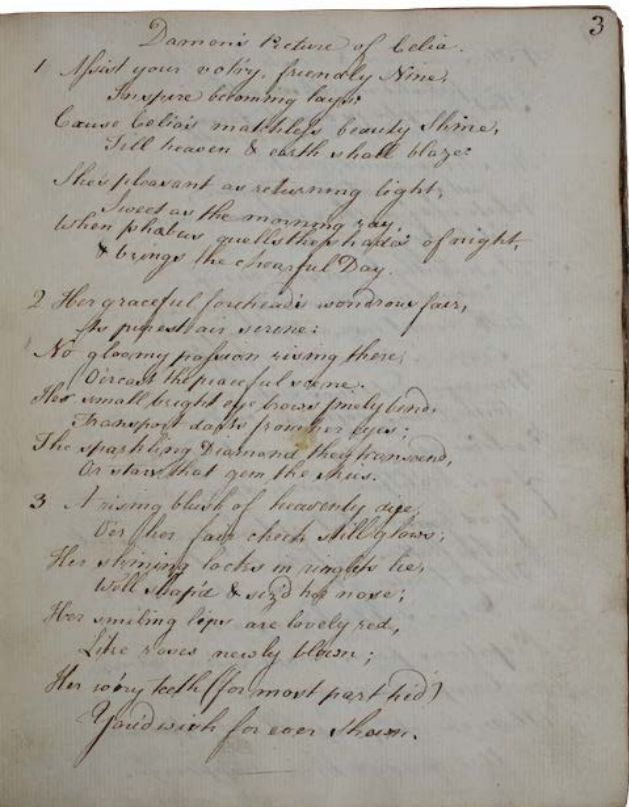 3
Damon's Picture of Celia.
1 Assist your vot'ry, friendly Nine,
Inspire becoming lays:
Cause Celia's matchless beauty Shine,
Till heaven & earth shall blaze:
She's pleasant as returning light,
Sweet as the morning ray,
When phœbus quells the shades of night,
& brings the chearful Day.
2 Her graceful forehead's wondrous fair,
As purest air serene:
No gloomy passion rising there,
O'ercast the peaceful scene.
Her small bright eye brows finely bend,
Transport darts from her eyes;
The sparkling Diamond they transcend,
Or stars that gem the skies.
3 A rising blush of heavenly dye,
O'er her fair cheek still glows,
Her shining locks in ringlets lie,
Well shap'd & siz'd her nose;
Her smiling lips are lovely red,
Like roses newly blown;
Her iv'ry teeth (for most part hid)
You'd wish for ever shown.